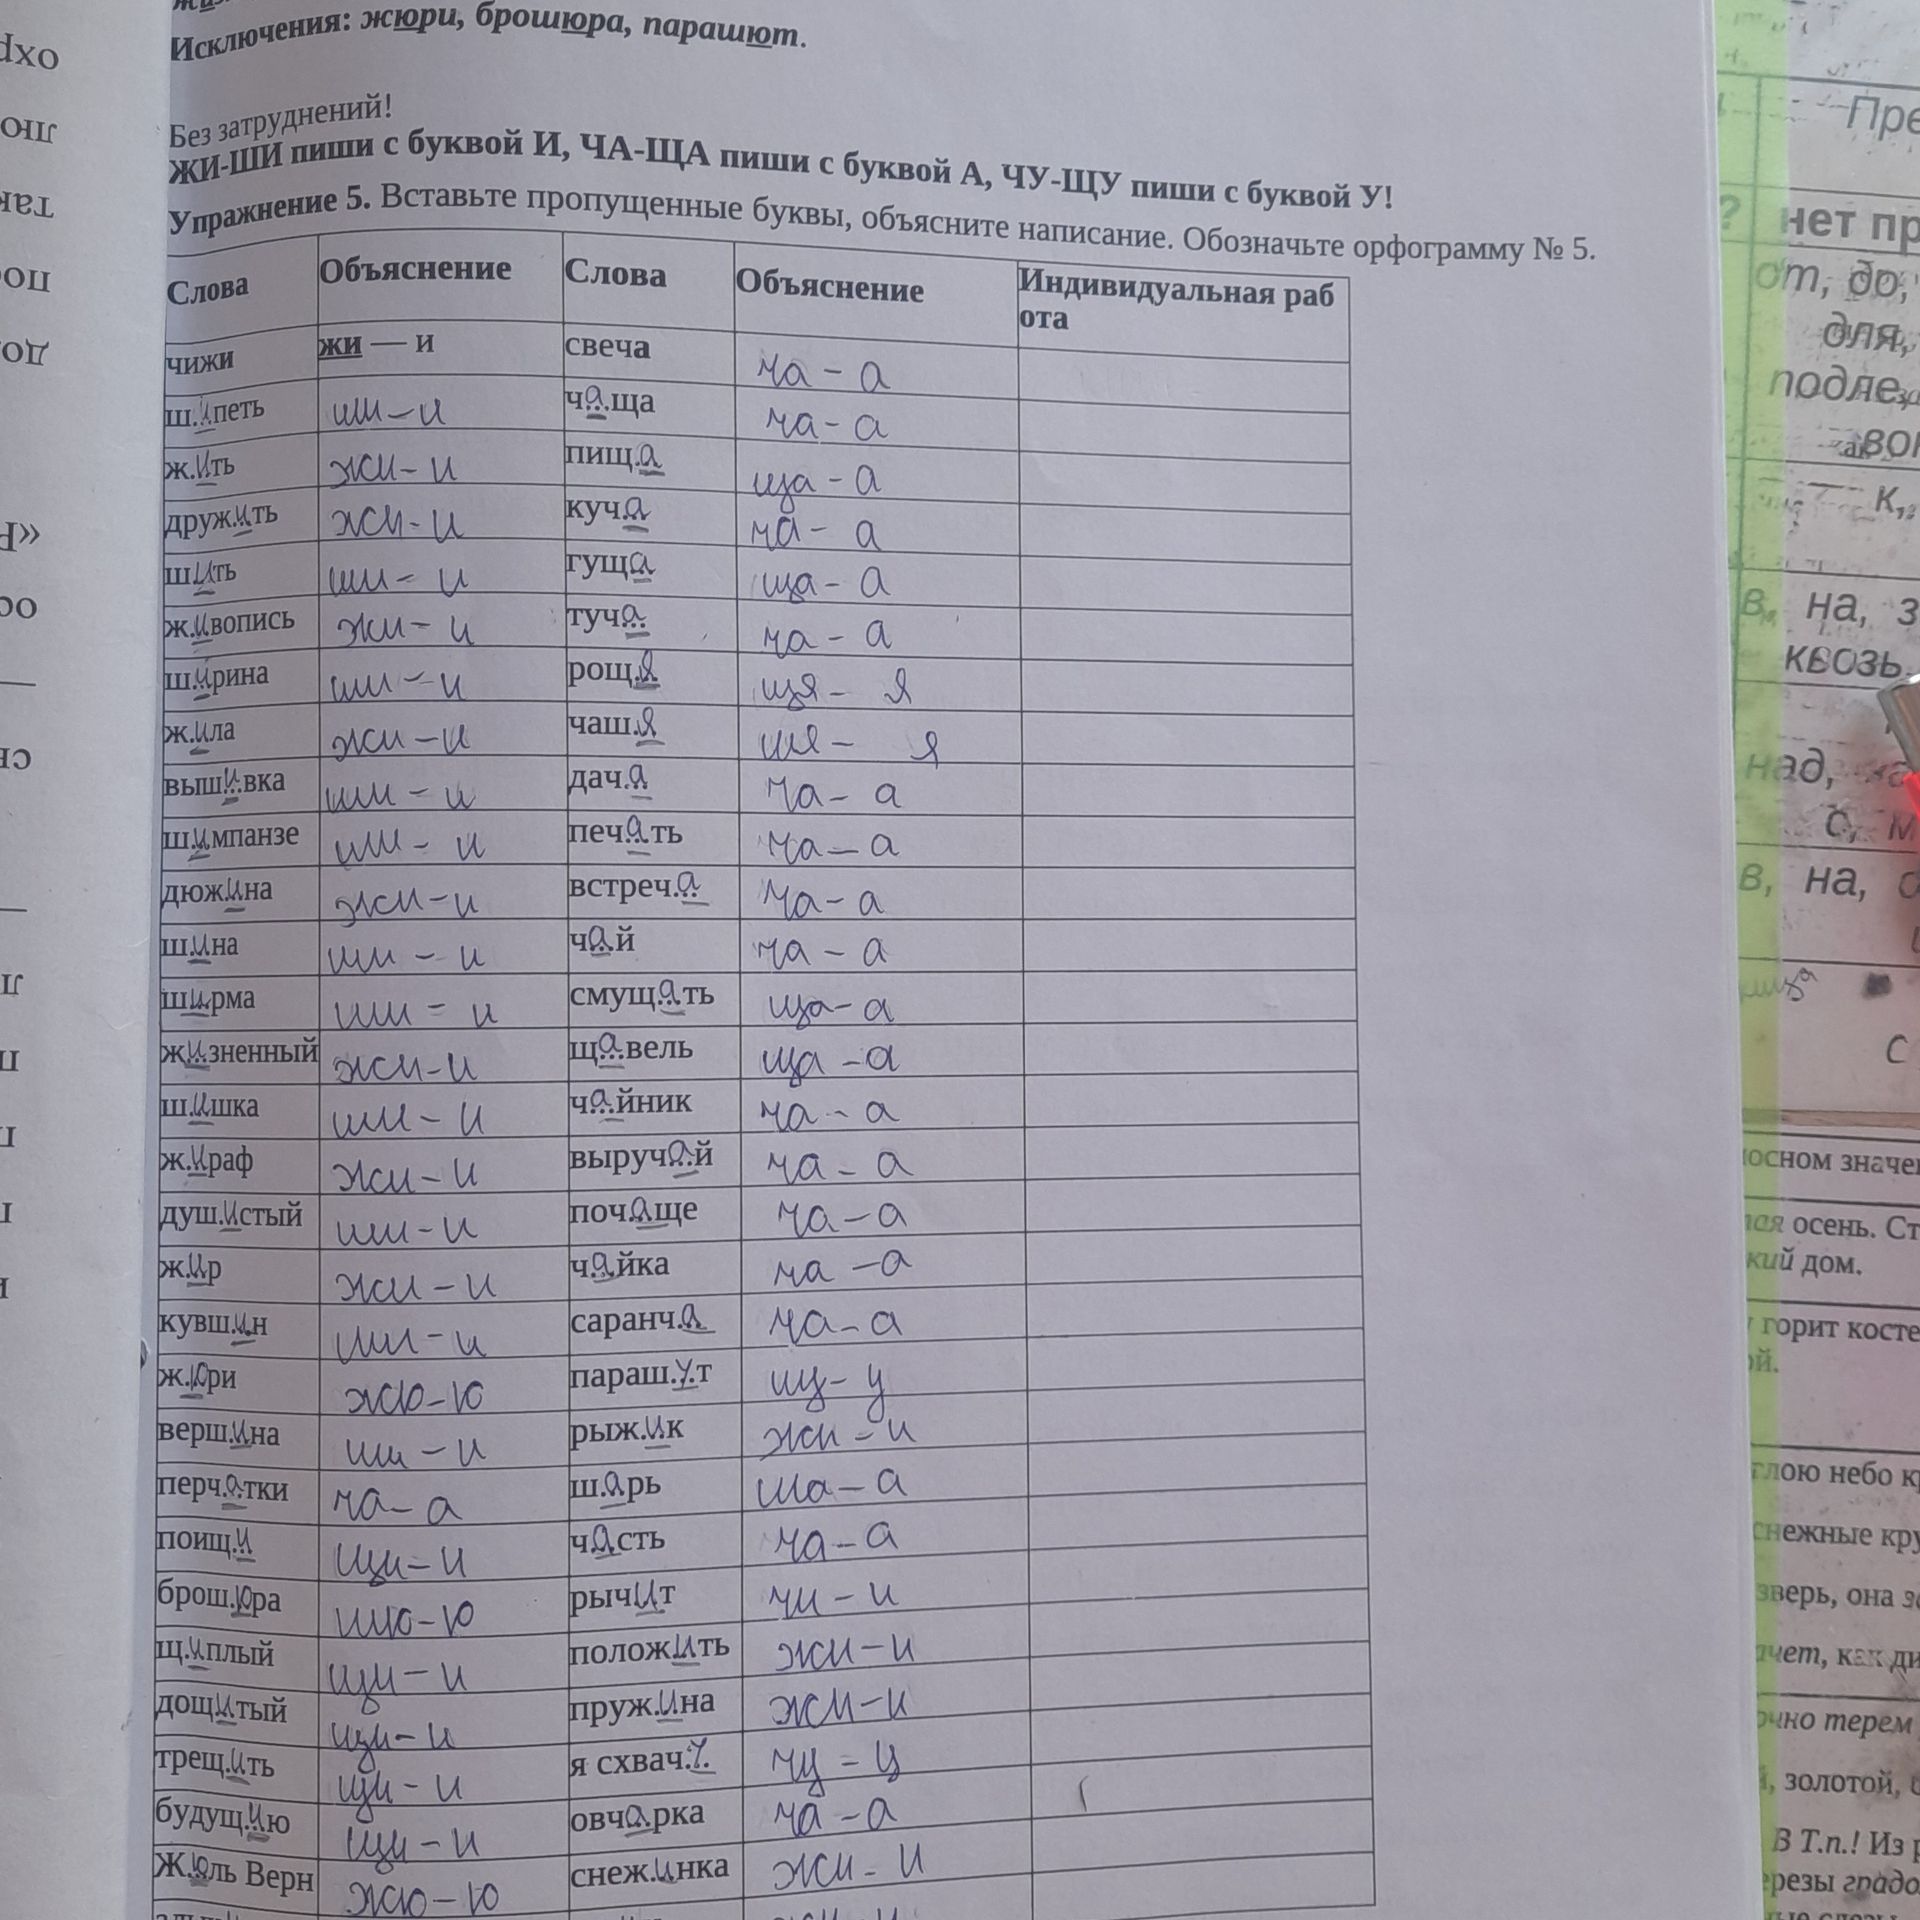 Исключения: жюри, брошюра, парашют.
Без затруднений!
ЖИ-ШИ пиши с буквой И, ЧА-ЩА пиши с буквой А, ЧУ-ЩУ пиши с буквой У!
Упражнение 5. Вставьте пропущенные буквы, объясните написание. Обозначьте орфограмму № 5.
Слова Объяснение Слова Объяснение Индивидуальная раб
ота
чижи жи — и свеча ча - а
ш.ипеть ши - и ча.ща ча - а
ж.ить жи - и пищ.а ща - а
друж.ить жи - и куч.а ча - а
шить ши - и гуща ща - а
ж.ивопись жи - и туча.. ча - а
ш.ирина ши - и рощ.я щя - я
ж.ила жи - и чаш.я шя - я
выши.вка ши - и дач.а ча - а
ш.импанзе ши - и печ.ать ча - а
дюж.ина жи - и встреч.а ча - а
ш.ина ши - и ча.й ча - а
ши.рма ши - и смущ.ать ща - а
жи.зненный жи - и ща.вель ща - а
ш.ишка ши - и ча.йник ча - а
ж.ираф жи - и выруча.й ча - а
душ.истый ши - и поч.аще ча - а
ж.ир жи - и ча.йка ча - а
кувш.ин ши - и саранч.а ча - а
ж.юри жю - ю параш.ут шу - у
верш.ина ши - и рыж.ик жи - и
перч.атки ча - а ш.арь ша - а
поищ.и щи - и ч.асть ча - а
брош.юра шю - ю рычит чи - и
щ.иплый щи - и положить жи - и
дощитый щи - и пруж.ина жи - и
трещ.ить щи - и я схвач.у. чу - у
будущ.ию щи - и овча.рка ча - а
Ж.юль Верн жю - ю снеж.инка жи - и
Пре
? нет пр
от, до,
для,
подле,
вок
к,
в, на, з
квозь,
над,
с, м
в, на, о
с
носном значен
осень. Ст
кий дом.
горит косте
ой.
глою небо кр
снежные кру
зверь, она за
как ди
очно терем
золотой,
В Т.п.! Из р
ерезы градо